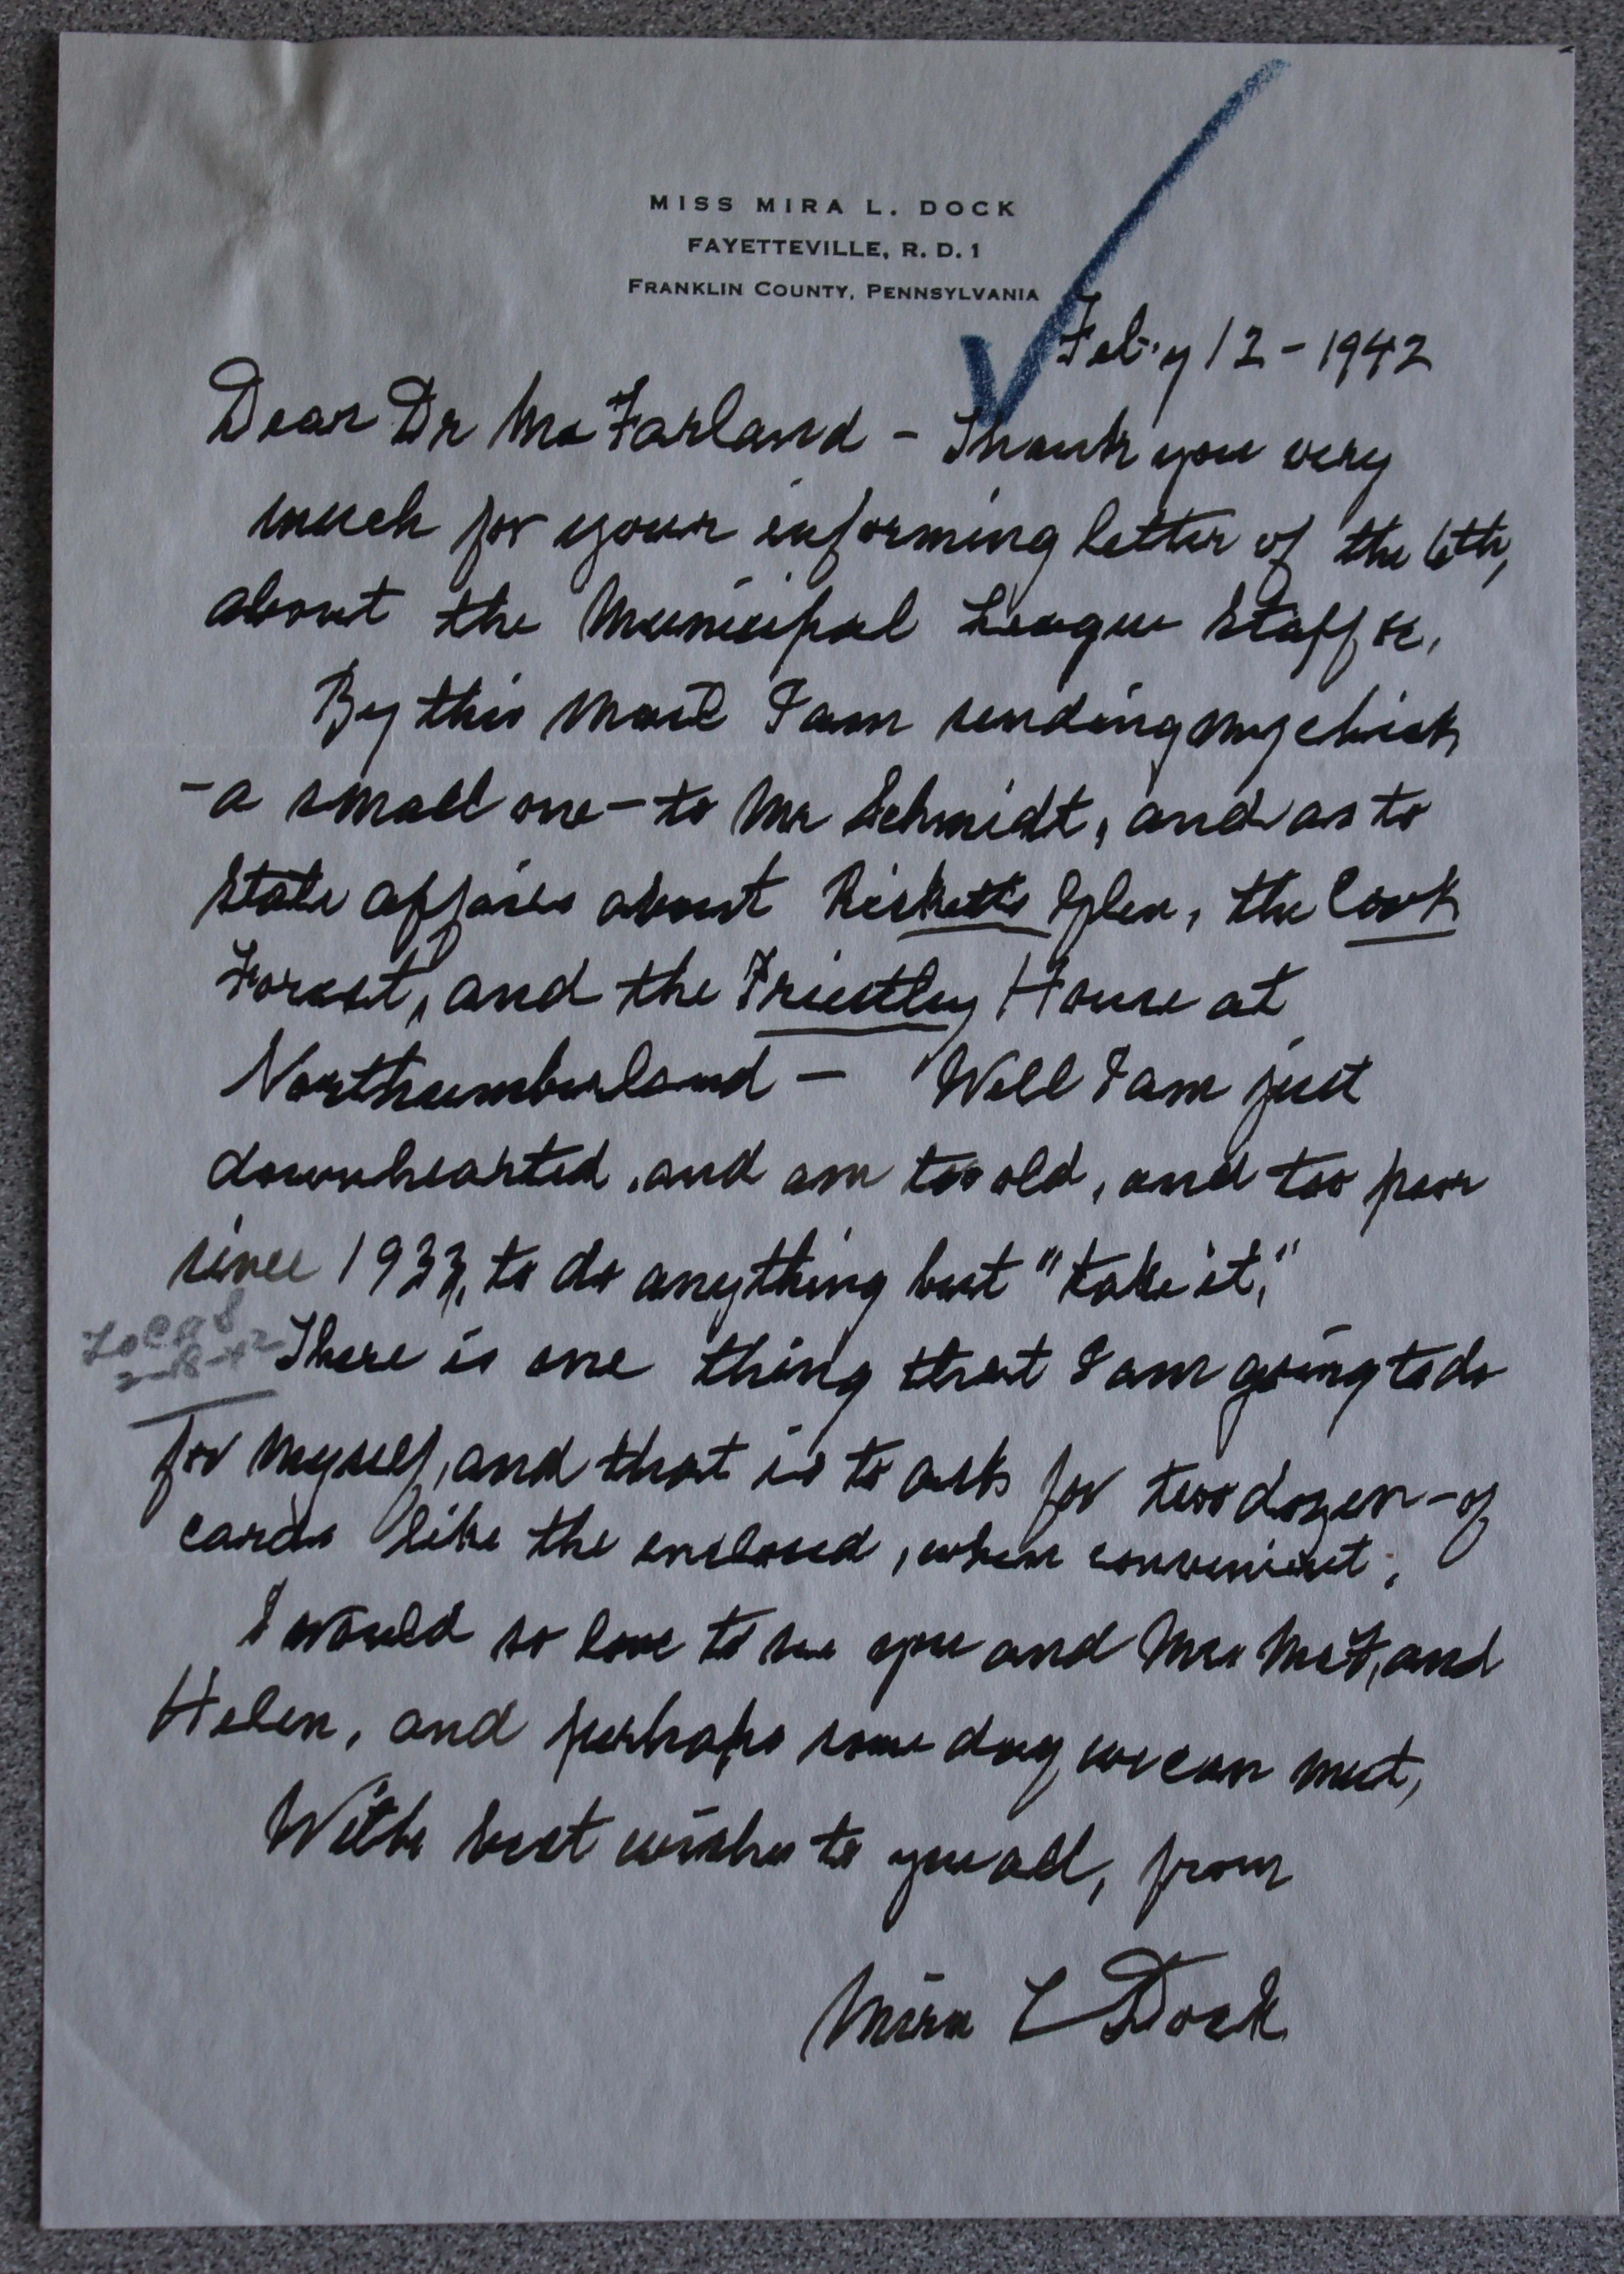 MISS MIRA L. DOCK
FAYETTEVILLE, R. D. 1
FRANKLIN COUNTY, PENNSYLVANIA
Feb'y 12 - 1942
Dear Dr McFarland - Thank you very
much for your informing letter of the 6th,
about the Municipal League Staff &c.
By this mail I am sending my check
- a small one - to Mr Schmidt, and as to
State affairs about Ricketts Glen, the Cook
Forest, and the Priestley House at
Northumberland - Well I am just
downhearted, and am too old, and too poor
since 1933, to do anything but "take it."
Local
2-18-42
There is one thing that I am going to do
for myself, and that is to ask for two dozen - of
cards like the enclosed, when convenient.
I would so love to see you and Mrs McF, and
Helen, and perhaps some day we can meet,
With best wishes to you all, from
Mira L Dock